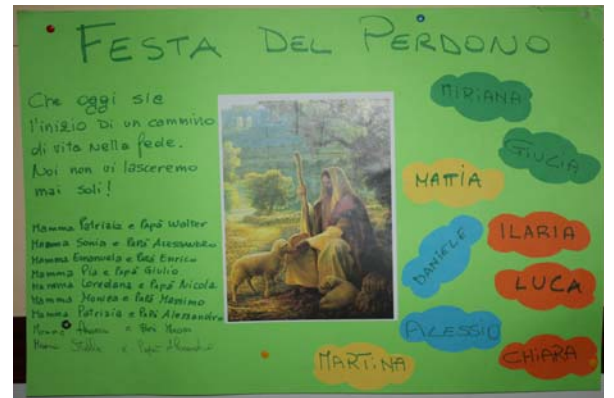 FESTA DEL PERDONO
Che oggi sia
l'inizio di un cammino
di vita nella fede.
Noi non vi lasceremo
mai soli!
Mamma Patrizia e Papà Walter
Mamma Sonia e Papà Alessandro
Mamma Emanuela e Papà Enrico
Mamma Pia e Papà Giulio
Mamma Loredana e Papà Nicola
Mamma Monica e Papà Massimo
Mamma Patrizia e Papà Alessandro
e Papà
Stella e Papà
MIRIANA
GIULIA
MATTIA
DANIELE
ILARIA
LUCA
ALESSIO
MARTINA
CHIARA